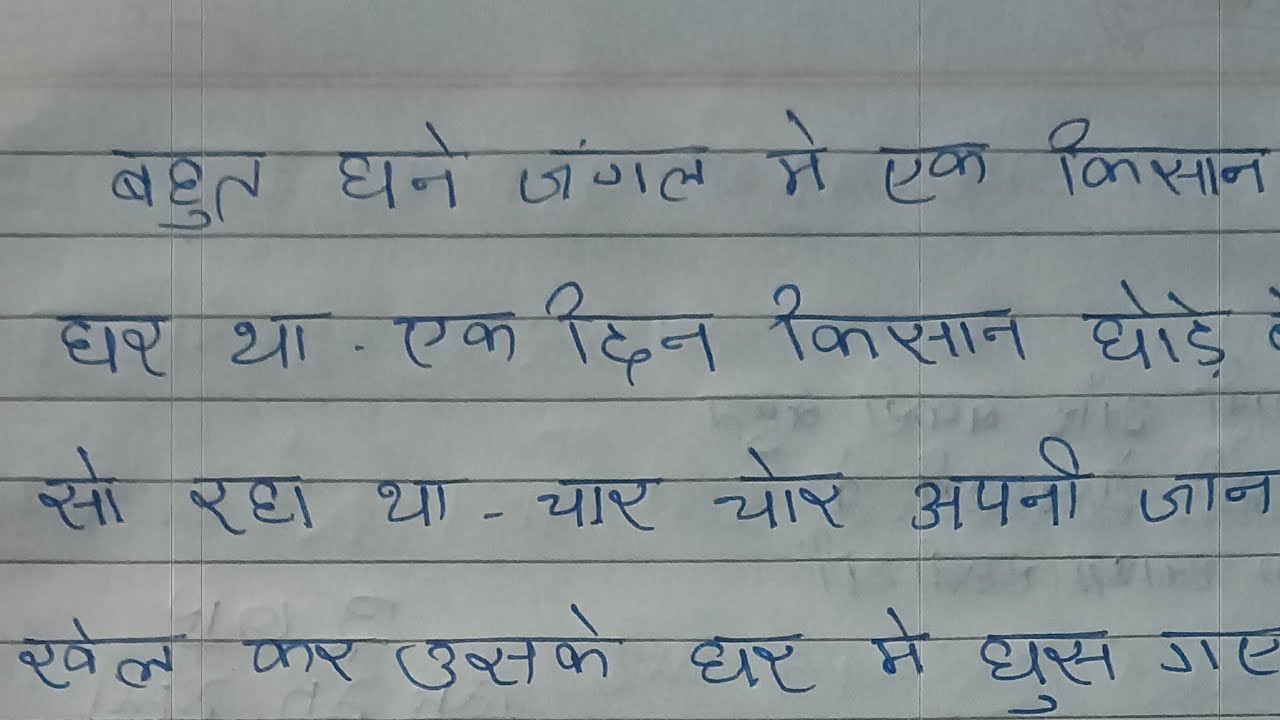 बहुत घने जंगल मे एक किसान
घर था . एक दिन किसान घोड़े
सो रहा था - चार चोर अपनी जान
खेल कर उसके घर मे घुस गए